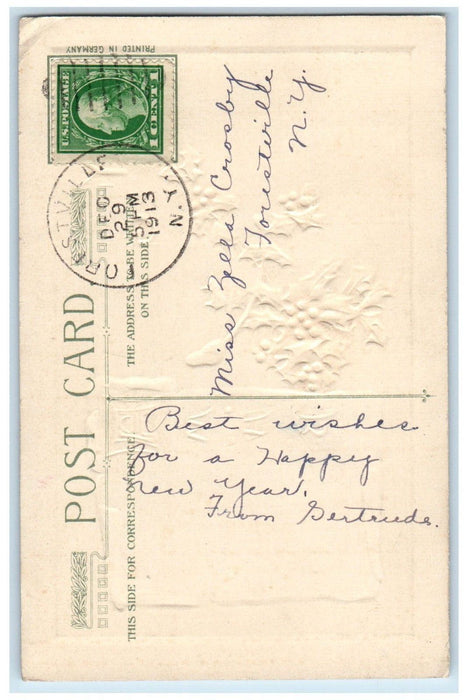 PRINTED IN GERMANY
U.S. POSTAGE
1 CENT 1
DEC
29
5 PM
1913
N.Y.
POST CARD
THE ADDRESS TO BE WRITTEN
ON THIS SIDE.
THIS SIDE FOR CORRESPONDENCE.
Miss Zella Crosby
Forestville
N.Y.
Best wishes
for a Happy
new Year,
From Gertrude.